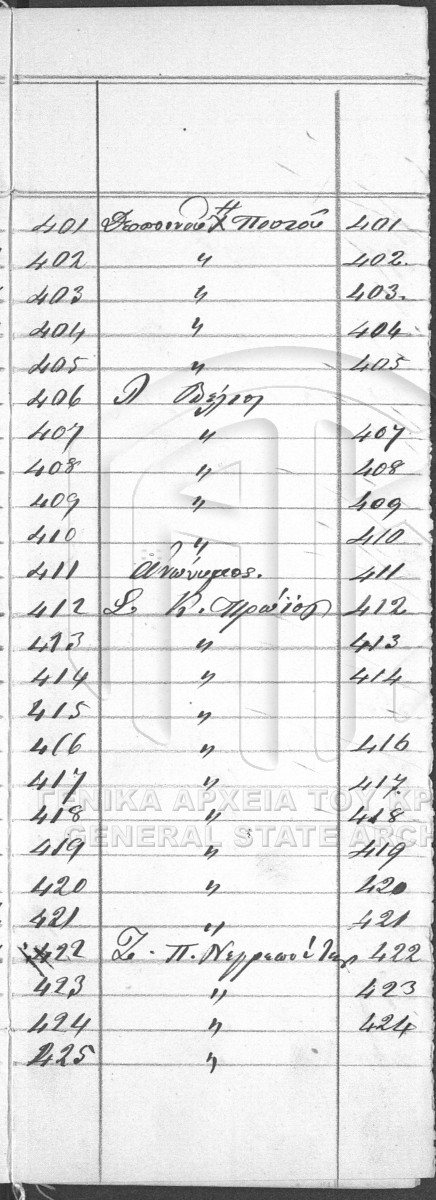 401 Δεσποινα Η Ποστού 401
402 〃 402.
403 〃 403.
404 〃 404
405 〃 405
406 Λ Βέλιος
407 〃 407
408 〃 408
409 〃 409
410 〃 410
411 Ανώνυμος. 411
412 Σ. Κ. Πρώϊος 412
413 〃 413
414 〃 414
415 〃
416 〃 416
417 〃 417.
ΓΕΝΙΚΑ ΑΡΧΕΙΑ ΤΟΥ ΚΡ
418 〃 418
GENERAL STATE ARCH
419 〃 419
420 〃 420
421 〃 421
422 Ζ. Π. Νεγρεπόντης 422
423 〃 423
424 〃 424
425 〃